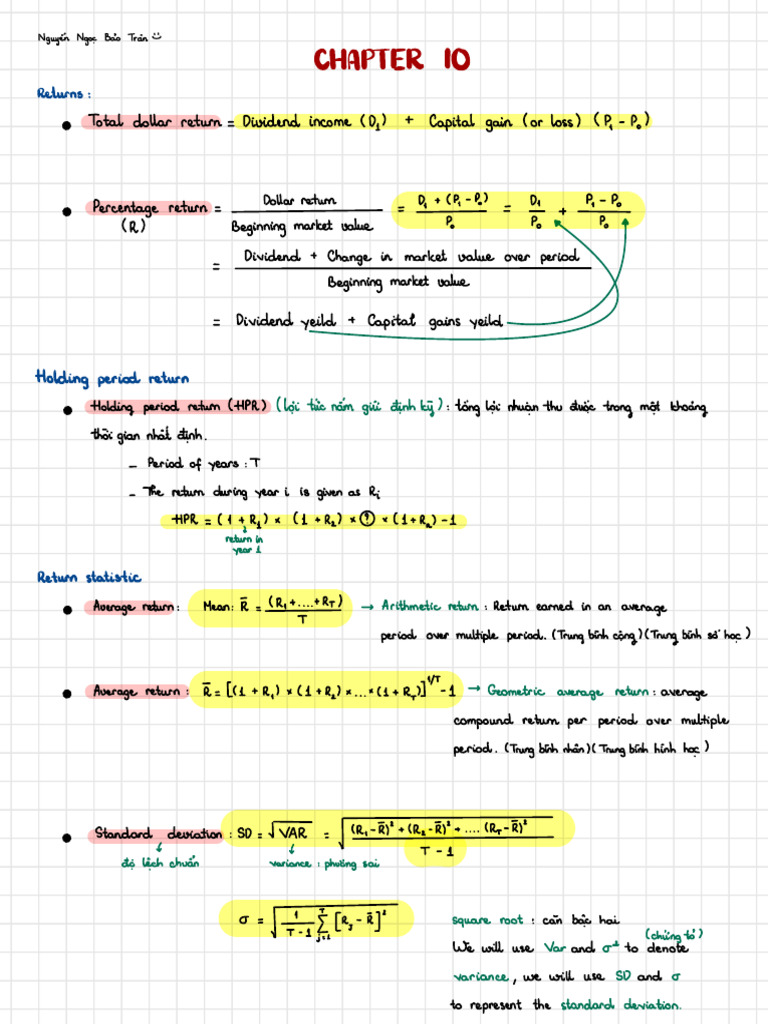 Nguyễn Ngọc Bảo Trân
CHAPTER 10
Returns:
• Total dollar return = Dividend income (D₁) + Capital gain (or loss) (P₁ - P₀)
• Percentage return (R) = Dollar return / Beginning market value = D₁ + (P₁ - P₀) / P₀ = D₁ / P₀ + P₁ - P₀ / P₀
= Dividend + Change in market value over period / Beginning market value
= Dividend yeild + Capital gains yeild
Holding period return
• Holding period return (HPR) (lợi tức nắm giữ định kỳ): tổng lợi nhuận thu được trong một khoảng
thời gian nhất định.
- Period of years: T
- The return during year i is given as Rᵢ
HPR = (1 + R₁) × (1 + R₂) × ? × (1 + R₂) - 1
return in
year 1
Return statistic
• Average return: Mean: R̄ = (R₁ + .... + R_T) / T → Arithmetic return: Return earned in an average
period over multiple period. (Trung bình cộng)(Trung bình số học)
• Average return: R̄ = [(1 + R₁) × (1 + R₂) × ... × (1 + R_T)]^1/T - 1 → Geometric average return: average
compound return per period over multiple
period. (Trung bình nhân)(Trung bình hình học)
• Standard deviation: SD = √VAR = √(R₁ - R̄)² + (R₂ - R̄)² + .... (R_T - R̄)² / T - 1
độ lệch chuẩn variance: phương sai
σ = √1 / T - 1 ∑ᵀⱼ₌₁ [Rⱼ - R̄]²
square root: căn bậc hai
(chứng tỏ)
We will use Var and σ² to denote
variance, we will use SD and σ
to represent the standard deviation.